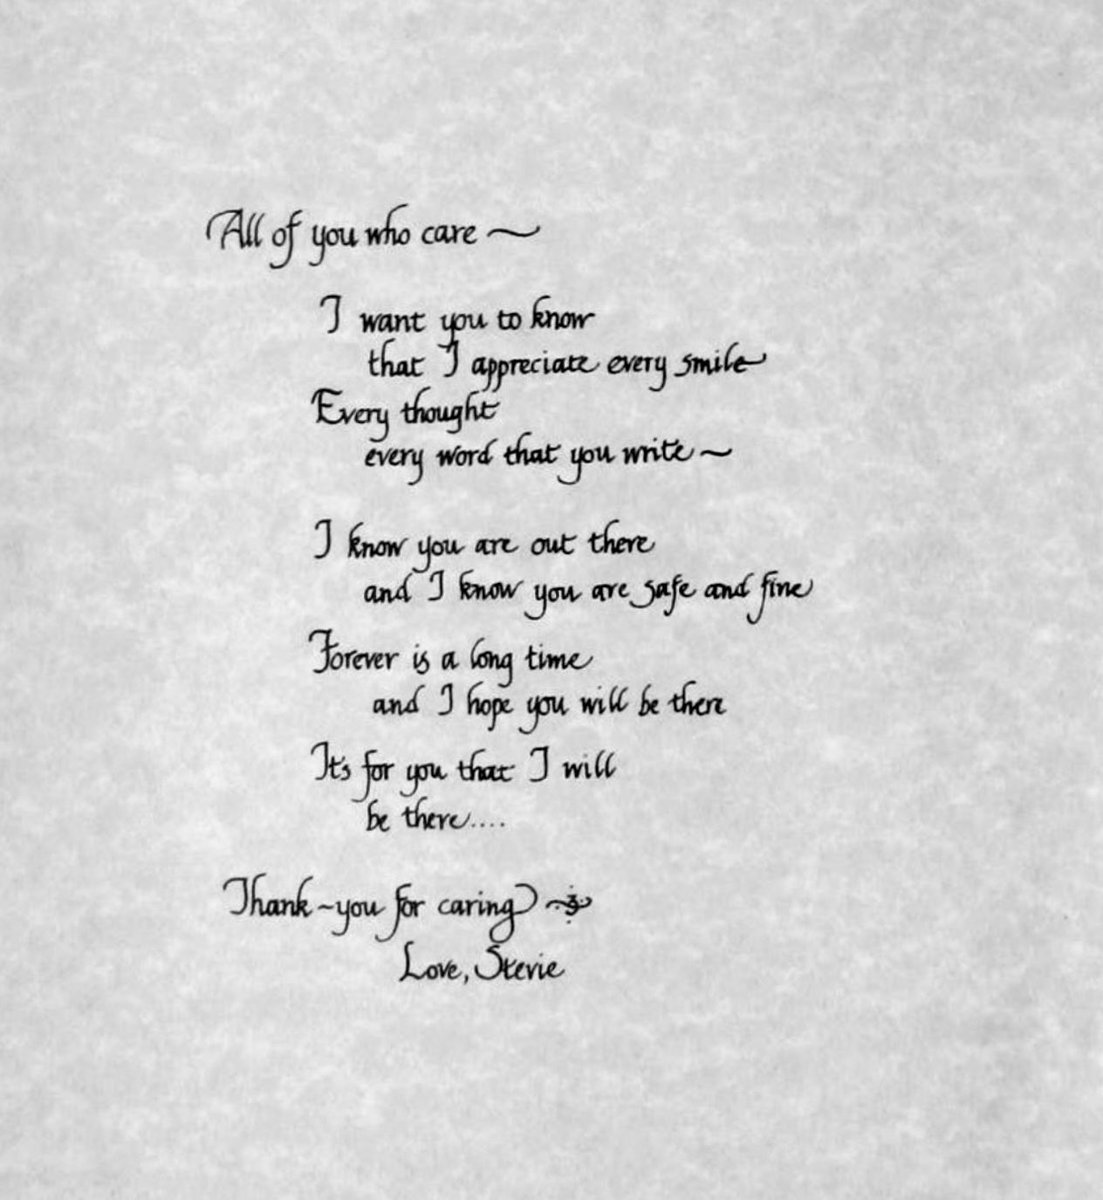 All of you who care ~
I want you to know
that I appreciate every smile
Every thought
every word that you write ~
I know you are out there
and I know you are safe and fine
Forever is a long time
and I hope you will be there
It's for you that I will
be there....
Thank~you for caring ~
Love, Stevie